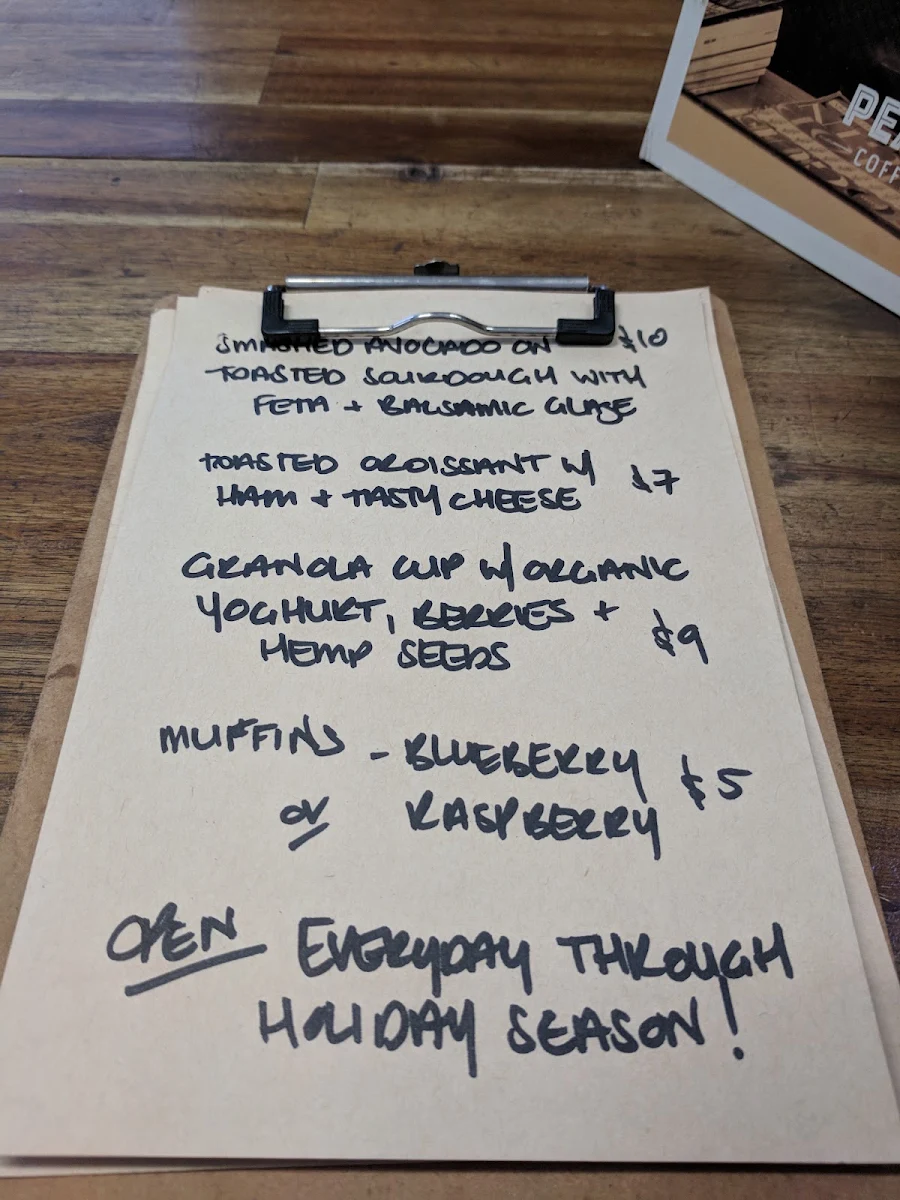 SMASHED AVOCADO ON $10
TOASTED SOURDOUGH WITH
FETA + BALSAMIC GLAZE
TOASTED CROISSANT W/
HAM + TASTY CHEESE $7
GRANOLA CUP W/ ORGANIC
YOGHURT, BERRIES +
HEMP SEEDS $9
MUFFINS - BLUEBERRY $5
or RASPBERRY
OPEN EVERYDAY THROUGH
HOLIDAY SEASON!